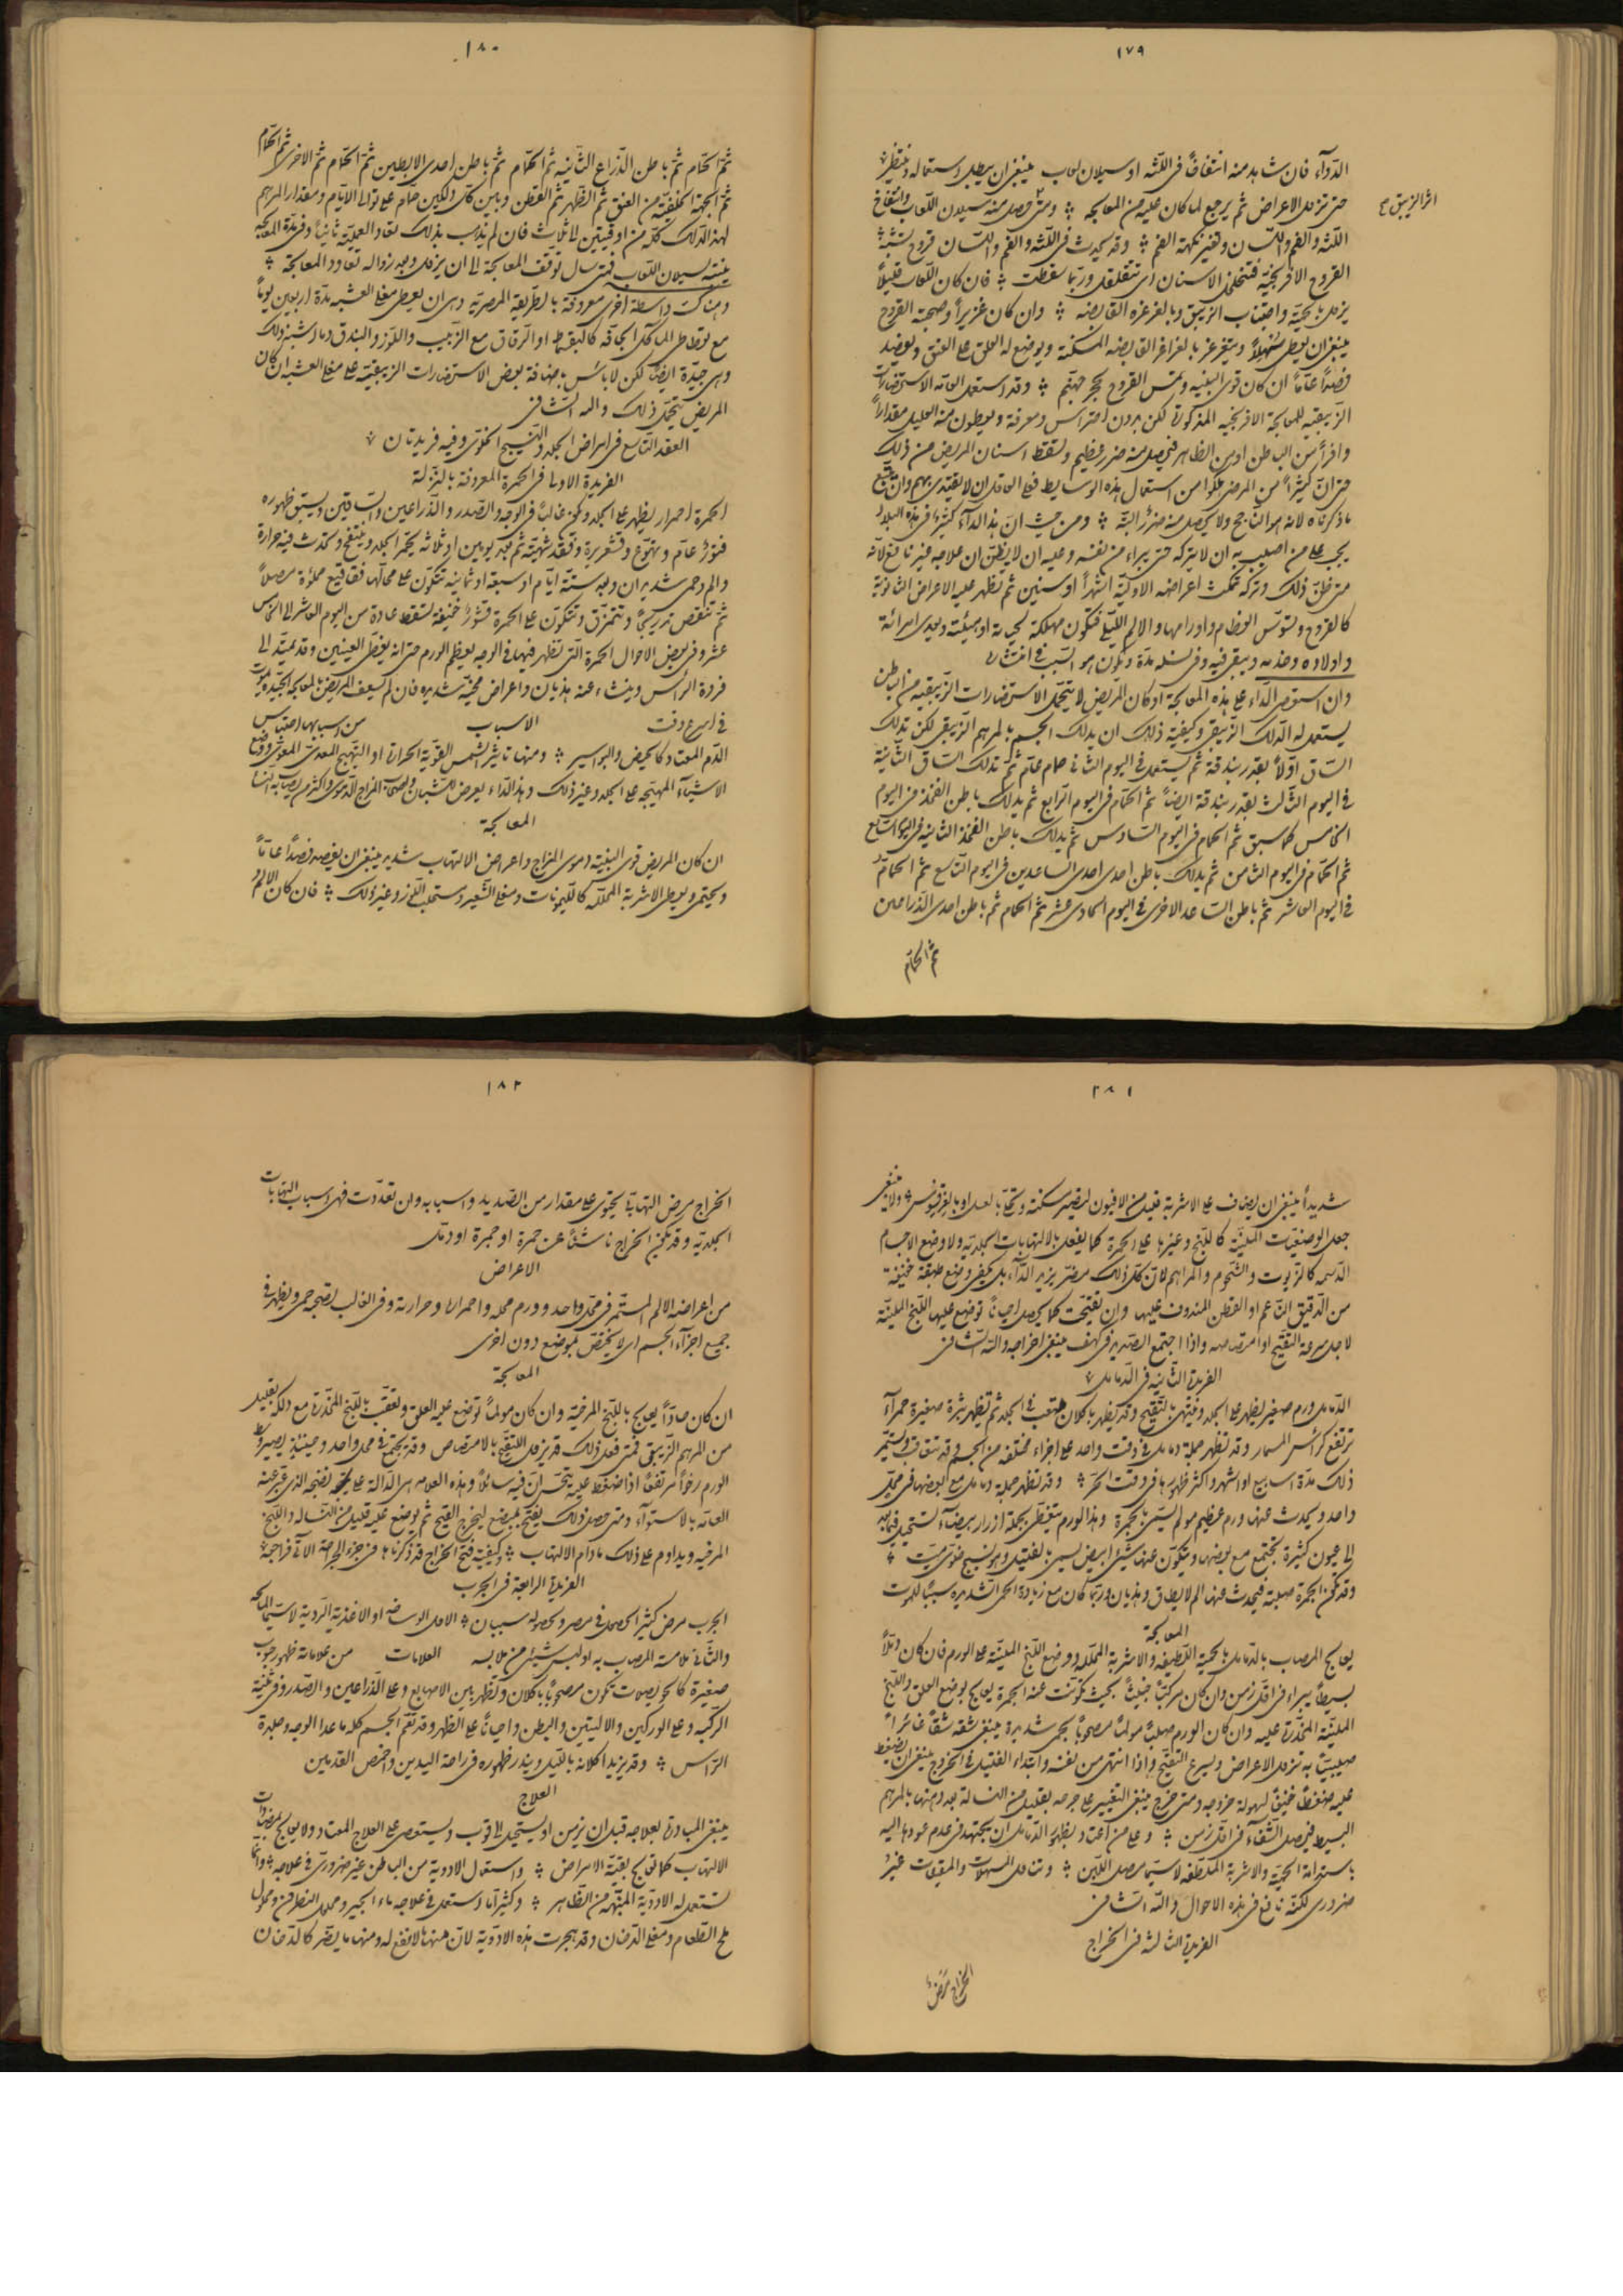 ١٧٩
الدوآء فان شاهد منه انتفاخًا فى اللثه او سيلان لعاب ينبغى ان يبطل استعماله وينتظر
حتى تزول الاعراض ثم يرجع لما كان عليه من المعالجه ومتى حصل منه سيلان اللعاب وانتفاخ
اثر الزيبق صح
اللثه والفم واللسان وتغير نكهة الفم وقد يحدث فى اللثه والفم واللسان قروح تشبه
القروح الافرنجيه فتتخلخل الاسنان اى تتقلقل وربما سقطت فان كان اللعاب قليلًا
يزول بالحميه واجتناب الزيبق وبالغرغره القابضه وان كان غزيرًا وصحبته القروح
ينبغى ان يعطى مسهلًا ويتغرغر بالغراغر القابضه المسكنة ويوضع له العلق على العنق ويفصد
فصدًا عامًا ان كان قوى البنيه وتمس القروح بحجر جهنم وقد استعمل العامه الاستحضارات
الزيبقيه للمعالجة الافرنجيه المذكورة لكن بدون احتراس ومعرفة ويعطون منه العليل مقدارًا
وافرًا من الباطن او من الظاهر فيحصل منه ضرر عظيم وتسقط اسنان المريض من ذلك
حتى ان كثيرًا من المرضى هلكوا من استعمال هذه الوسايط فعلى العاقل ان لا يقتدى بهم وان يتبع
ما ذكرناه لانه هو الناجح ولا يحصل منه ضرر البته ومن حيث ان هذا الدآء كثير فى هذه البلاد
يجب على من اصيب به ان لا يتركه حتى يبراء من نفسه وعليه ان لا يظن ان علاجه غير نافع لانه
متى ظن ذلك وتركه تمكث اعراضه الاولية اشهرًا او سنين ثم تظهر عليه الاعراض الثانوية
كالقروح وتسوس العظام واورامها والالم الليلى فتكون مهلكة لحياته او هيئته ويعدى امرائه
واولاده وخدمه ويبقى فيه وفى نسله مدة ويكون هو السبب فى انتشاره
وان استعصى الدآء على هذه المعالجة او كان المريض لا يتحمل الاستحضارات الزيبقيه من الباطن
يستعمل له الدلك الزيبقى وكيفية ذلك ان يدلك الجسم بالمرهم الزيبقى لكن تدلك
الساق اولًا بقدر بندقة ثم يستعمل فى اليوم الثانى حمام عام ثم تدلك الساق الثانية
فى اليوم الثالث بقدر بندقة ايضًا ثم الحمام فى اليوم الرابع ثم يدلك باطن الفخذ فى اليوم
الخامس كما سبق ثم الحمام فى اليوم السادس ثم يدلك باطن الفخذ الثانيه فى اليوم السابع
ثم الحمام فى اليوم الثامن ثم يدلك باطن احدى الساعدين فى اليوم التاسع ثم الحمام
فى اليوم العاشر ثم باطن الساعد الاخرى فى اليوم الحادى عشر ثم الحمام ثم باطن احدى الذراعين
ثم الحمام
١٨٠
ثم الحمام ثم باطن الذراع الثانيه ثم الحمام ثم باطن احدى الابطين ثم الحمام ثم الاخرى ثم الحمام
ثم الجهة الخلفية من العنق ثم الظهر ثم القطن وبين كل دلكين حمام على توالى الايام ومقدار المرهم
لهذا الدلك كله من اوقيتين الى ثلاث فان لم يذهب بذلك تعاد العملية ثانيًا وفى مدة المعالجه
ينتبه لسيلان اللعاب فمتى سال توقف المعالجة الى ان يزول وبعد زواله تعاود المعالجة
وهناك واسطة اخرى معروفة بالطريقة المصرية وهى ان يعطى مغلى العشبه مدة اربعين يومًا
مع تعاطى المآكل الجافه كالبقسماط او الرقاق مع الزبيب واللوز والبندق وما اشبه ذلك
وهى جيدة ايضًا لكن لا بأس باضافة بعض الاستحضارات الزيبقيه على مغلى العشبه ان كان
المريض يتحمل ذلك والله الشافى
العقد التاسع فى امراض الجلد والنسيج الخلوى وفيه فريدتان
الفريدة الاولى فى الحمرة المعروفة بالنزلة
الحمرة احمرار يظهر على الجلد وتكون غالبًا فى الوجه والصدر والذراعين والساقين ويسبق ظهوره
فتور عام وتهوع وقشعريرة وفقد شهية ثم بعد يومين او ثلاثه يحمر الجلد وينتفخ وتحدث فيه حرارة
والم وحمى شديدان وبعد ستة ايام او سبعة او ثمانيه تتكون على محالها فقاقيع مملؤة مصلًا
ثم تنقص تدريجًا وتتمزق وتتكون على الحمرة قشور خفيفة تسقط عادة من اليوم العاشر الى الخامس
عشر وفى بعض الاحوال الحمرة التى تظهر فيها فى الوجه يعظم الورم حتى انه يغطى العينين وقد تمتد الى
فروة الرأس وينشاء عنه هذيان واعراض مخية شديده فان لم يسعف المريض بالمعالجه الجيده يموت
فى اسرع وقت الاسباب من اسبابها احتباس
الدم المعتاد كالحيض والبواسير ومنها تاثير الشمس القوية الحرارة او التهيج المعدى المعوى ووضع
الاشيآء المهيجه على الجلد وغير ذلك وهذا الداء يعرض للشبان ولصحاب المزاج الدموى واكثر من يصاب به النسا
المعالجة
ان كان المريض قوى البنية دموى المزاج واعراض الالتهاب شديده ينبغى ان يفصد فصدًا عامًا
ويحتمى ويعطى الاشربة المحلله كالليمونات ومغلى الشعير ومستحلب اللوز وغير ذلك فان كان الالم
٢٨١
شديدًا ينبغى ان يضاف على الاشربة قليل من الافيون لتصير مسكنة وتحلى بالعسل او بالعرقسوس ولا ينبغى
جعل الوضعيات الملينة كاللبخ وغيرها على الحمرة كما يفعل بالالتهابات الجلديه ولا وضع الاجسام
الدسمه كالزيوت والشحوم والمراهم لان كل ذلك مضر يزيد الدآء بل يكفى وضع طبقة خفيفة
من الدقيق الناعم او القطن المندوف عليها وان تقيحت كما يحصل احيانًا توضع عليها اللبخ الملينة
لاجل سرعة التقيح او امتصاصه واذا اجتمع الصديد فى كهف ينبغى اخراجه والله الشافى
الفريدة الثانيه فى الدمامل
الدمل ورم صغير يظهر على الجلد وينتهى بالتقيح وقد يظهر باكلان متعب فى الجلد ثم تظهر بثرة صغيرة حمرآء
ترتفع كرأس المسمار وقد تظهر جملة دمامل فى وقت واحد على اجزاء مختلفه من الجسم وقد تتعاقب ويستمر
ذلك مدة اسابيع او اشهر واكثر ظهورها فى وقت الحر وقد تظهر جملة دمامل مع بعضها فى محل
واحد ويحدث عنها ورم عظيم مولم يسمى بالجمرة وهذا الورم يتغطى بجملة ازرار بيضآء تستحيل فيما بعد
الى عيون كثيرة تجتمع مع بعضها ويتكون عنها شئ ابيض يسمى بالفتيل وهو نسيج خلوى ميت
وقد تكون الجمرة صعبة فيحدث عنها الم لا يطاق وهذيان وربما كان مع زيادة الحمى الشديده سببًا للموت
المعالجة
يعالج المصاب بالدمامل بالحمية اللطيفه والاشربة المحلله ووضع اللبخ الملينة على الورم فان كان دملًا
بسيطًا يبراء فى اقل زمن وان كان مركبًا خبيثًا بحيث تكونت عنه الجمرة يعالج بوضع العلق واللبخ
الملينة المخدرة عليه وان كان الورم صلبًا مولمًا مصحوبًا بحمى شديدة ينبغى شقه شقًا غائرًا
صليبيًا به تزول الاعراض ويسرع التقيح واذا انتهى من نفسه وابتداء الفتيل فى الخروج ينبغى ان يضغط
عليه ضغطًا خفيفًا لسهولة خروجه ومتى خرج ينبغى التغيير على جرحه بقليل من النسالة بعد دهنها بالمرهم
البسيط فيحصل الشفآء فى اقل زمن وعلى من اعتاد بظهور الدمامل ان يجتهد فى عدم عودها اليه
باستدامة الحمية والاشربة الملطفه لاسيما مصل اللبن وتناول المسهلات والمقيئات غير
ضرورى لكنه نافع فى هذه الاحوال والله الشافى
الفريدة الثالثه فى الخراج
الخراج مرض
١٨٢
الخراج مرض التهابى يحتوى على مقدار من الصديد واسبابه وان تعددت فهى اسباب التهابات
الجلدية وقد يكون الخراج ناشئًا عن حمرة او جمرة او دمل
الاعراض
من اعراضه الالم المستمر فى محل واحد وورم محله واحمراره وحرارته وفى الغالب تصحبه حمى ويظهر فى
جميع اجزآء الجسم اى لا يختص بموضع دون اخرى
المعالجة
ان كان حادًا يعالج باللبخ المرخية وان كان مولمًا توضع عليه العلق وتعقب باللبخ المخدرة مع دلكه بقليل
من المرهم الزيبقى فمتى فعل ذلك قد يزول التقيح بالامتصاص وقد يجتمع فى محل واحد وحينئذ يصير
الورم رخوًا مرتفعًا اذا ضغط عليه يحس ان فيه سائلًا وهذه العلامه هى الدالة على نضجه الذى تعرفه
العامه بالاستوآء ومتى حصل ذلك يفتح بالمبضع ليخرج القيح ثم يوضع عليه قليل من النساله واللبخ
المرخيه ويداوم على ذلك مادام الالتهاب وكيفية فتح الخراج قد ذكرناها فى جزء الجراحة الاتى فراجعه
الفريدة الرابعة فى الجرب
الجرب مرض كثير الحصول فى مصر ولحصوله سببان الاول الوساخه او الاغذية الردية لاسيما المالحه
والثانى ملامسة المصاب به او لبس شيئ من ملابسه العلامات من علاماته ظهور حبوب
صغيرة كالحويصلات تكون مصحوبًا باكلان وتظهر بين الاصابع وعلى الذراعين والصدر وفى ثنية
الركبه وعلى الوركين والاليتين والبطن واحيانًا على الظهر وقد تعم الجسم كله ماعدا الوجه وجلدة
الراس وقد يزيد اكلانه بالليل ويندر ظهوره فى راحة اليدين واخمص القدمين
العلاج
ينبغى المبادرة بعلاجه قبل ان يزمن او يستحيل الى قوب ويستعصى على العلاج المعتاد ولا يعالج بمضادات
الالتهاب كما تعالج بقية الامراض واستعمال الادوية من الباطن غير ضرورى فى علاجه وانما
تستعمل له الادوية المنبهه من الظاهر وكثيرًا ما استعمل فى علاجه ماء الجير ومحلول النطرون ومحلول
ملح الطعام ومغلى الدخان وقد هجرت هذه الادوية لان منها ما لا نفع له ومنها ما يضر كالدخان